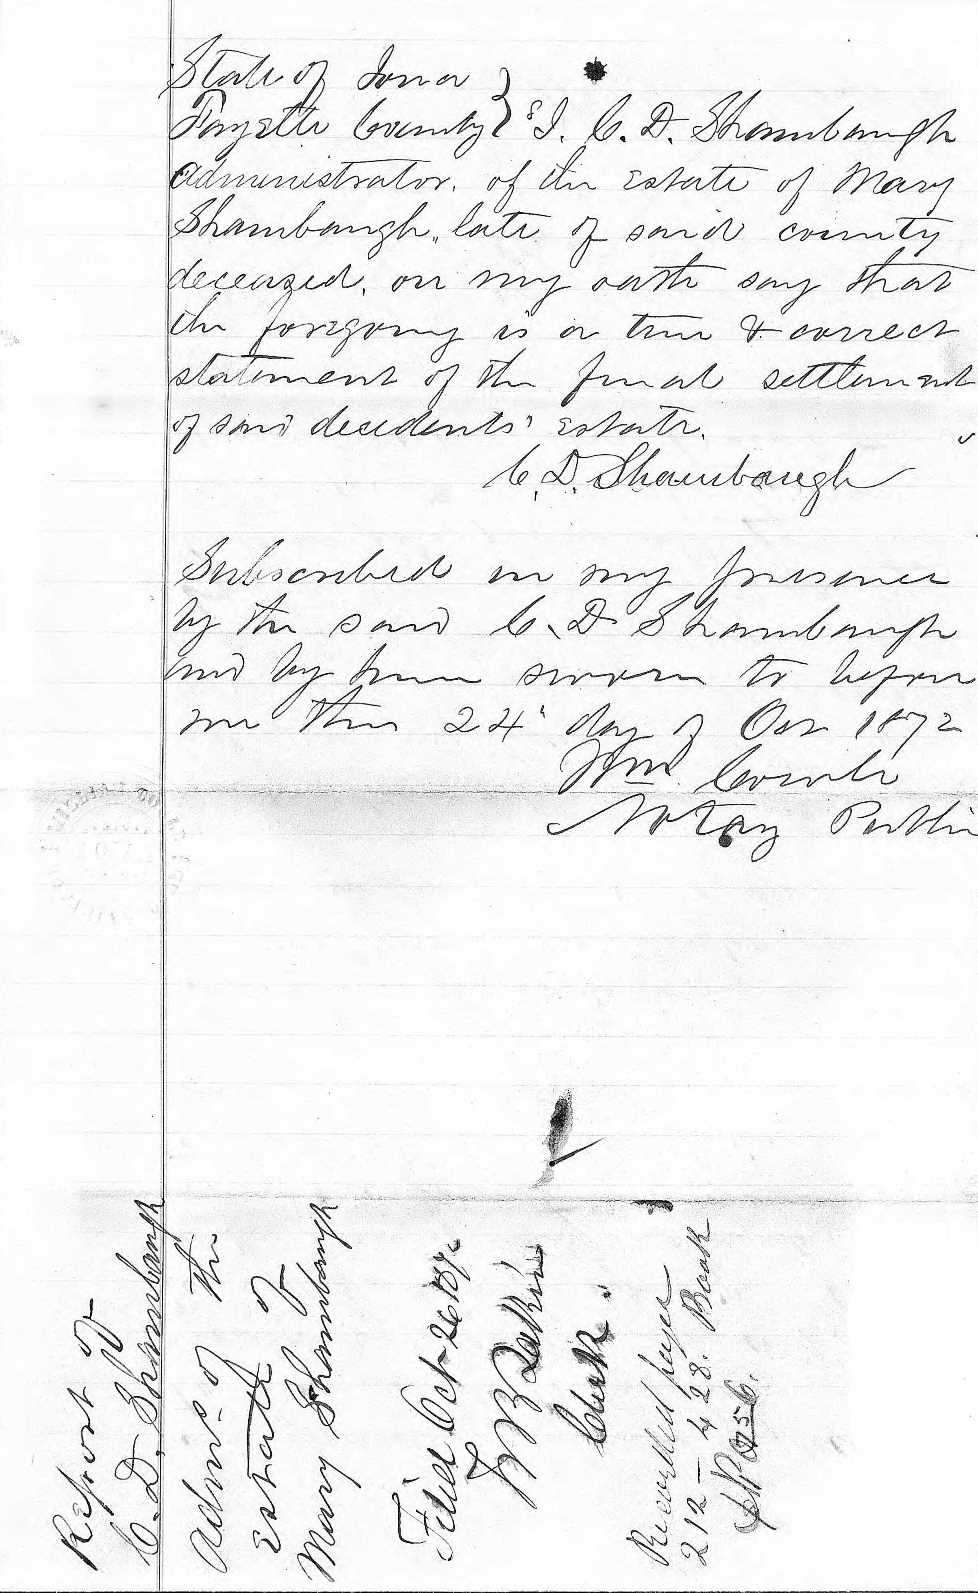 State of Iowa }
Fayette County } ss I. C. D. Shambaugh
Administrator. of the Estate of Mary
Shambaugh, late of said county
deceased, on my oath say that
the foregoing is a true & correct
statement of the final settlement
of said decedents' Estate.
C. D. Shambaugh
Subscribed in my presence
by the said C. D Shambaugh
and by him sworn to before
me this 24" day of Oct 1872
Wm.
Notary Public
Report of
C. D. Shambaugh
Admr. of the
Estate of
Mary Shambaugh
Filed Oct 26
Clerk.
Recorded pages
212 - 428. Book